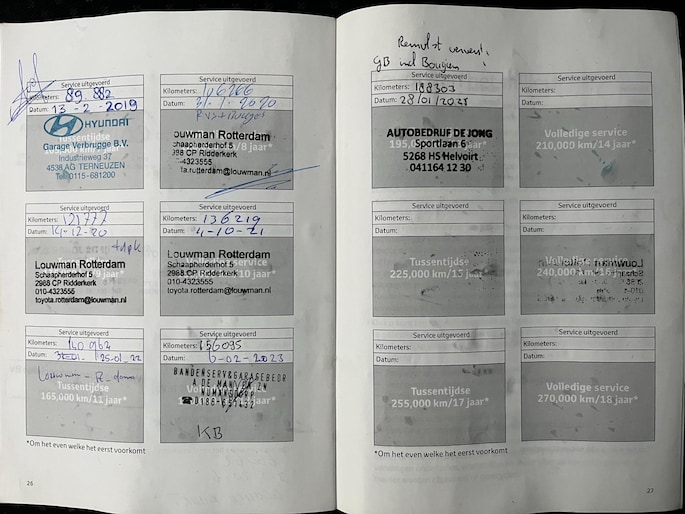 Service uitgevoerd
Kilometers: 89 882
Datum: 13-2-2019
HYUNDAI
Garage Verbrugge B.V.
Industrieweg 37
4538 AG TERNEUZEN
Tel. 0115-681200
Service uitgevoerd
Kilometers: 106266
Datum: 31-1-2020
ouwman Rotterdam
/8 jaar*
chaapherderhof 5
988 CP Ridderkerk
-4323555
ta.rotterdam@louwman.nl
Service uitgevoerd
Kilometers: 121777
Datum: 14-12-20
Louwman Rotterdam
Schaapherderhof 5
2988 CP Ridderkerk
010-4323555
toyota.rotterdam@louwman.nl
Service uitgevoerd
Kilometers: 136219
Datum: 4-10-21
Louwman Rotterdam
Schaapherderhof 5
2988 CP Ridderkerk
010-4323555
toyota.rotterdam@louwman.nl
Service uitgevoerd
Kilometers: 140962
Datum: 25.01_22
Tussentijdse
165,000 km/11 jaar*
Service uitgevoerd
Kilometers: 156095
Datum: 6-02-2023
BANDENSERV&GARAGEBEDR
KB
*Om het even welke het eerst voorkomt
26
GB
Service uitgevoerd
Kilometers: 188303
Datum: 28/01/2025
AUTOBEDRIJF DE JONG
Sportlaan 6
5268 HS Helvoirt
041164 12 30
Service uitgevoerd
Kilometers:
Datum:
Volledige service
210,000 km/14 jaar*
Service uitgevoerd
Kilometers:
Datum:
Tussentijdse
225,000 km/15 jaar*
Service uitgevoerd
Kilometers:
Datum:
Volledige service
240,000 km/16 jaar*
Service uitgevoerd
Kilometers:
Datum:
Tussentijdse
255,000 km/17 jaar*
Service uitgevoerd
Kilometers:
Datum:
Volledige service
270,000 km/18 jaar*
*Om het even welke het eerst voorkomt
27